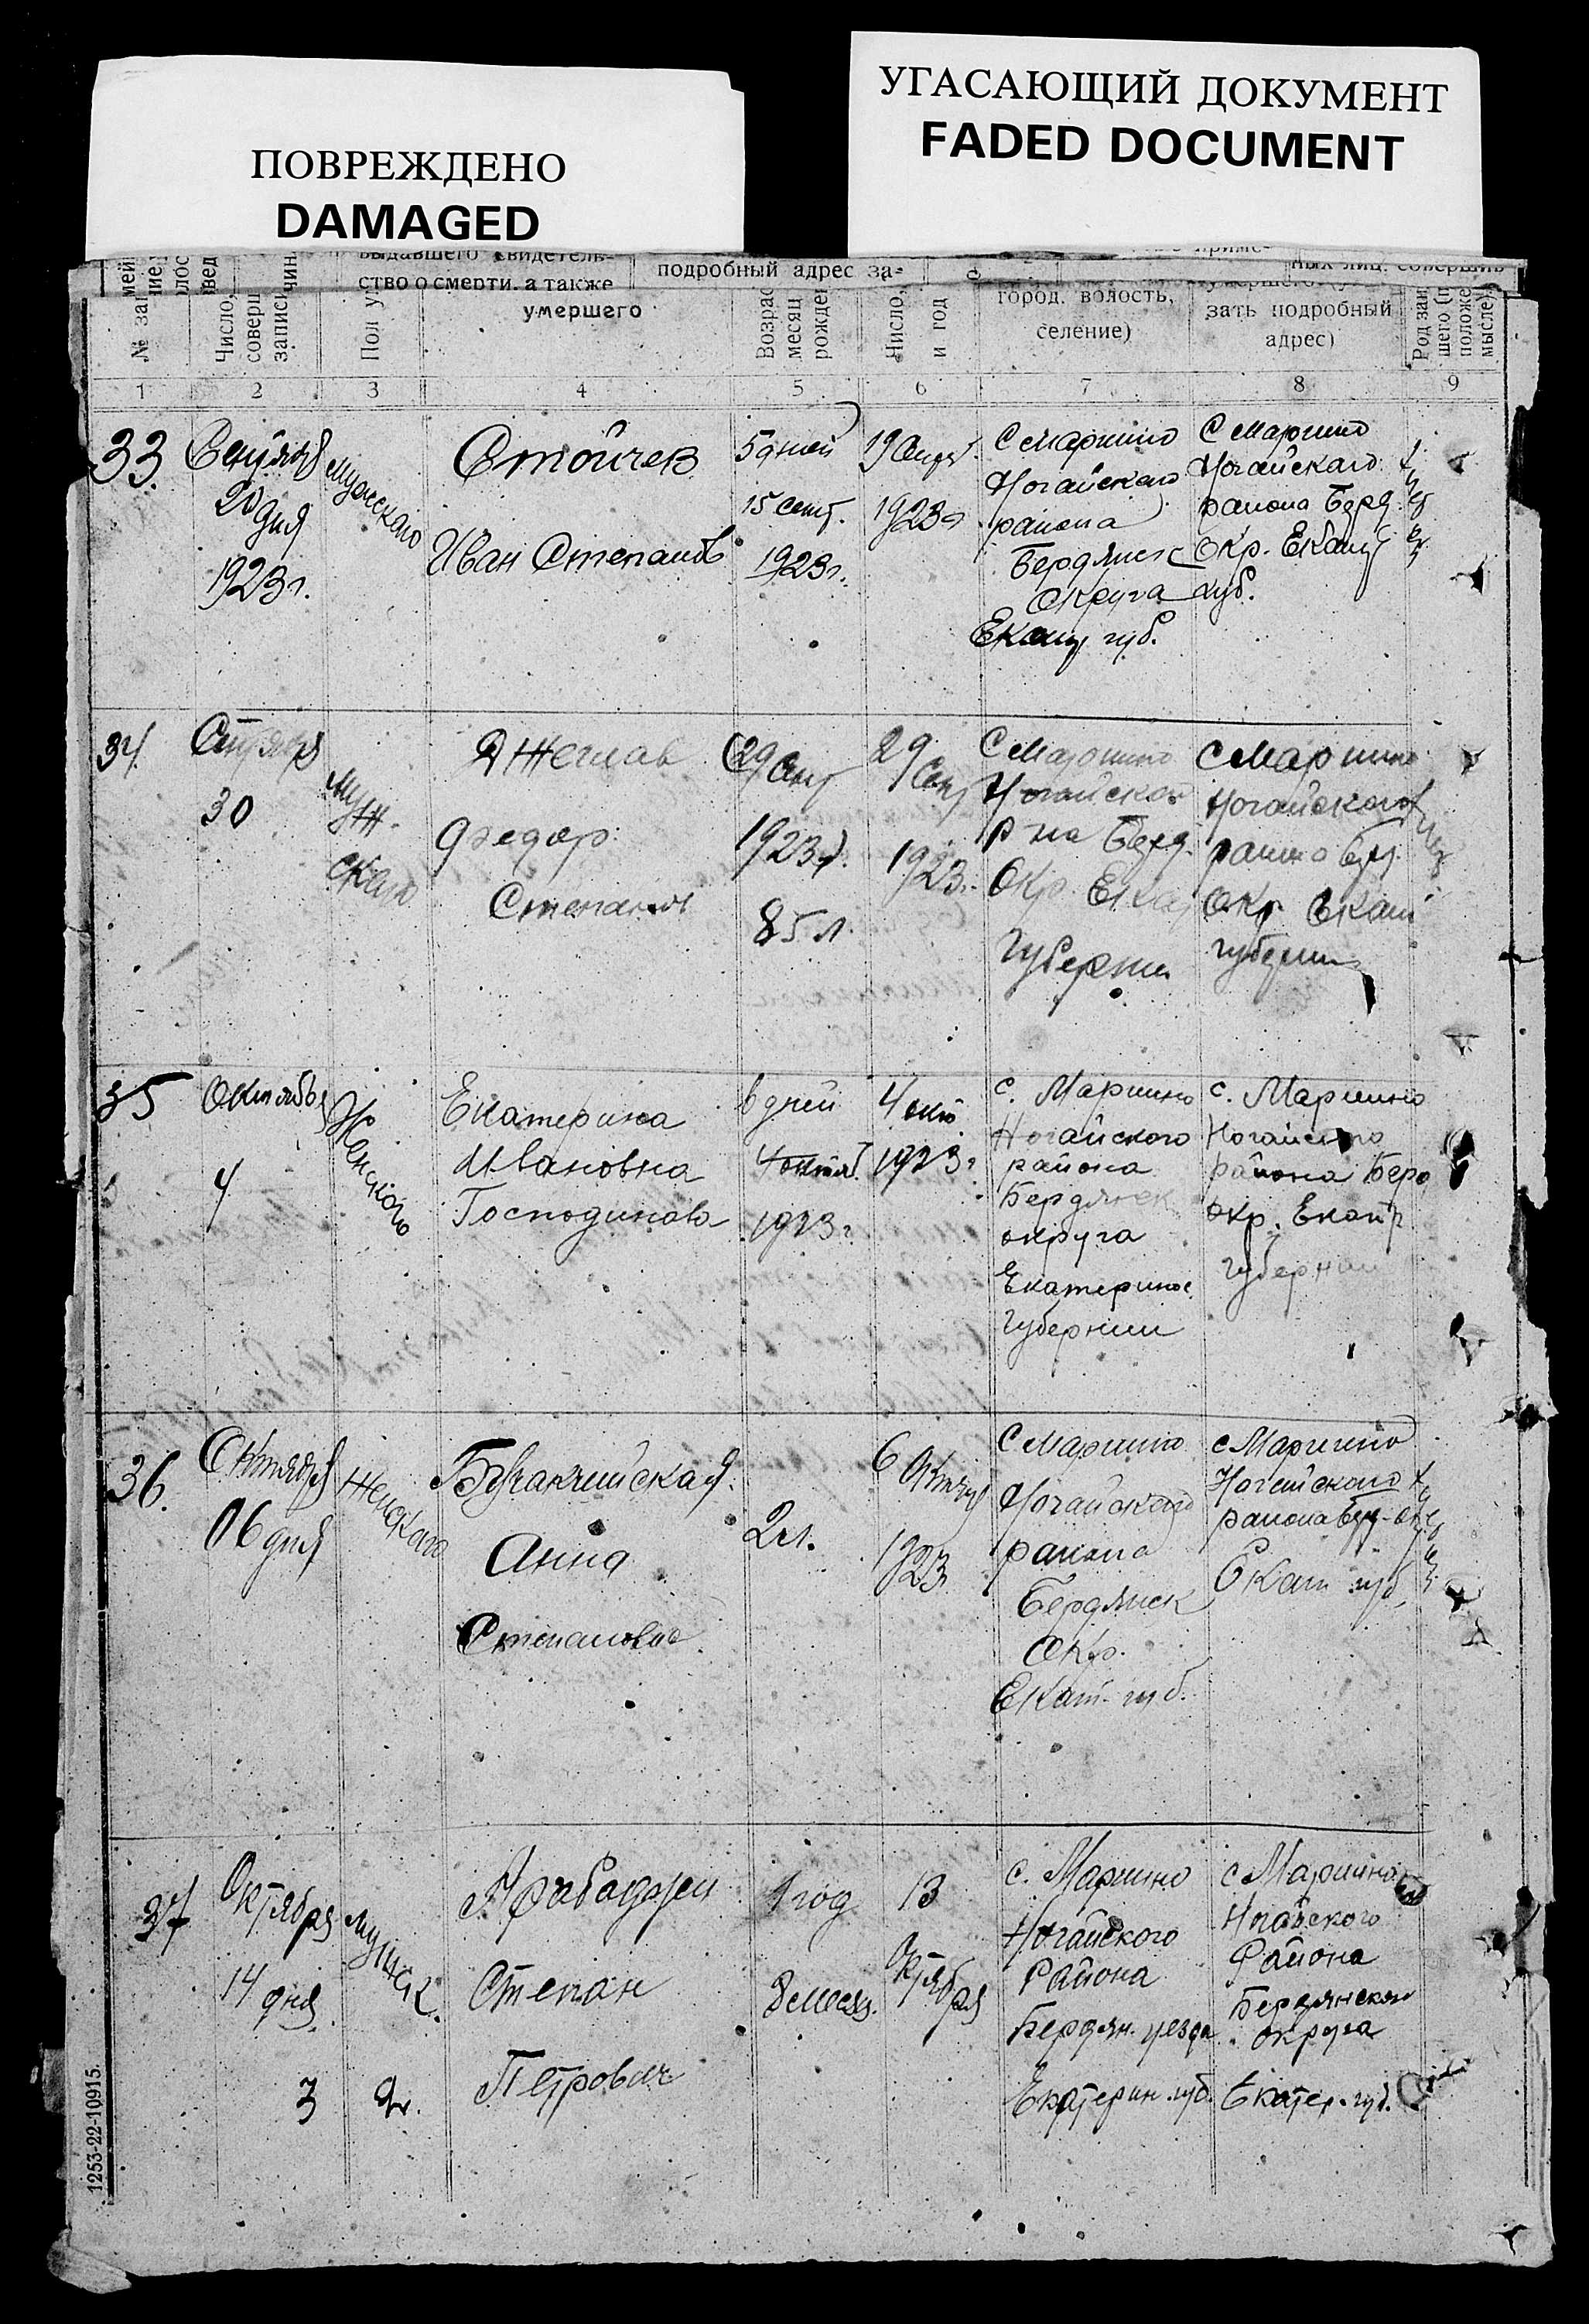 УГАСАЮЩИЙ ДОКУМЕНТ
FADED DOCUMENT
ПОВРЕЖДЕНО
DAMAGED
выдавшего свидетель-
ство о смерти, а также
подробный адрес за-
умершего
город, волость,
селение)
зать подробный
адрес)
1 2 3 4 5 6 7 8 9
33.
Сентяб
20 дня
1923 г.
мужскаго
Стойчев
Иван Степанов
5 дней
15 сент.
1923 г.
19 Сент.
1923 г
С Марино
Ногайскаго
района
Бердянск
Округа
Екат губ.
С Марино
Ногайскаго
района Берд.
Окр. Екат
губ.
34.
30
муж-
скаго
Федор
Степанов
29 Сент
1923 г.
85 л.
29 Сент
1923 г.
С Марино
р на Берд.
Окр. Ека
Губерни
с Марино
Ногайскаго
Окр. Екат
губерни
35
Октября
4
Женского
Екатерина
Ивановна
Господинова
6 дней
4 октяб.
1923 г.
4 окт
1923 г
с. Марино
Ногайского
района
Бердянск
округа
Екатеринос.
губернии
с. Марино
Ногайского
района Берд
окр. Екат
губернии
36.
Октября
06 дня
Женскаго
Анна
Степановна
2 л.
6 Октяб
1923
С Марино
Ногайскаго
района
Бердянск
Окр.
Екат губ.
с Марино
Ногайскаго
района
Екат губ.
37
Октября
14 дня
3
мужск.
2.
Арабаджи
Степан
Петрович
1 год
8 месяц.
13
Октября
с. Марино
Ногайского
Района
Бердян. уезда
Екатерин. губ.
с Марино
Ногайского
Района
Бердянского
округа
Екатер. губ.
1253-22-10915.